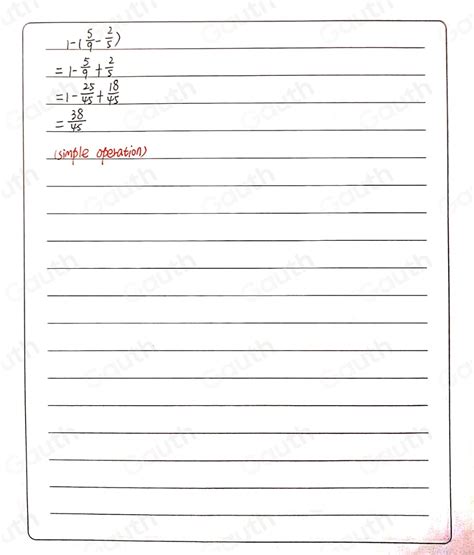 1-(5/9-2/5)
=1-5/9+2/5
=1-25/45+18/45
=38/45
(simple operation)
Gauth